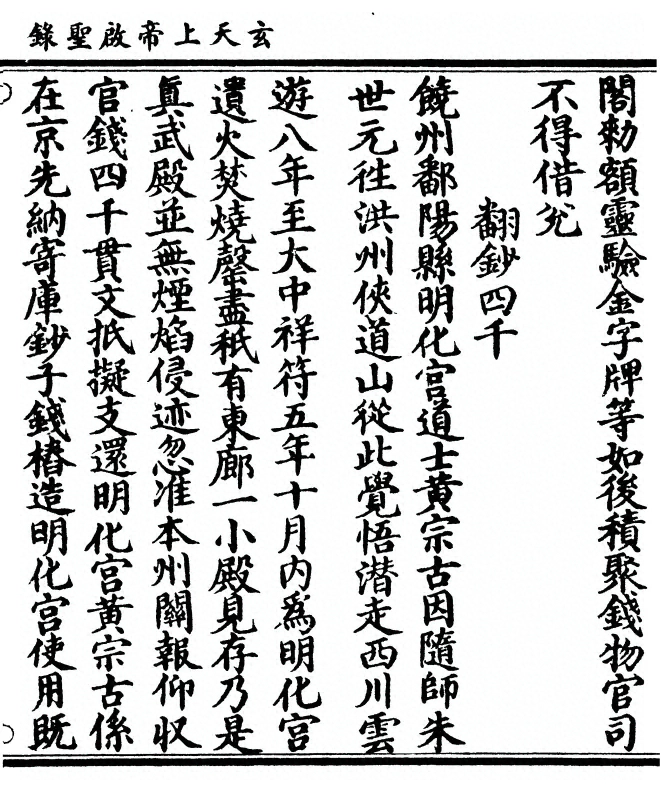 玄天上帝啟聖錄
閣勑額靈驗金字牌等如後積聚錢物官司
不得借兊
翻鈔四千
饒州鄱陽縣明化宮道士黃宗古因隨師朱
世元徃洪州俠道山從此覺悟潛走西川雲
遊八年至大中祥符五年十月內爲明化宮
遺火焚燒罄盡秖有東廊一小殿見存乃是
眞武殿並無煙焰侵迹忽准本州關報仰収
官錢四千貫文抵擬支還明化宮黃宗古係
在京先納寄庫鈔子錢樁造明化宮使用既